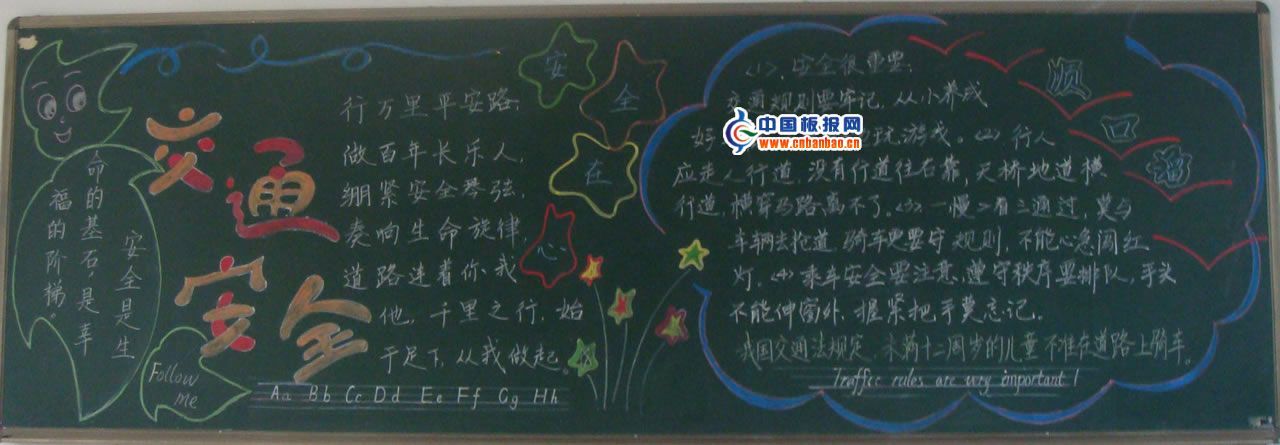 安全是生
命的基石,是幸
福的阶梯。
Follow
me
交通
安全
行万里平安路;
做百年长乐人,
绷紧安全琴弦,
奏响生命旋律,
道路连着你、我
他,千里之行,始
于足下,从我做起。
Aa Bb Cc Dd Ee Ff Gg Hh
安
全
在
心
顺
口
溜
<1>、安全很重要;
交通规则要牢记,从小养成
好
玩游戏。<2> 行人
应走人行道,没有行道往右靠,天桥地道横
行道,横穿马路离不了。<3>、一慢二看三通过,莫与
车辆去抢道 骑车更要守规则,不能心急闯红
灯。<4> 乘车安全要注意,遵守秩序要排队,手头
不能伸窗外,握紧把手莫忘记。
我国交通法规定,未满十二周岁的儿童不准在道路上骑车。
Traffic rules are very important!
中国板报网
www.cnbanbao.cn